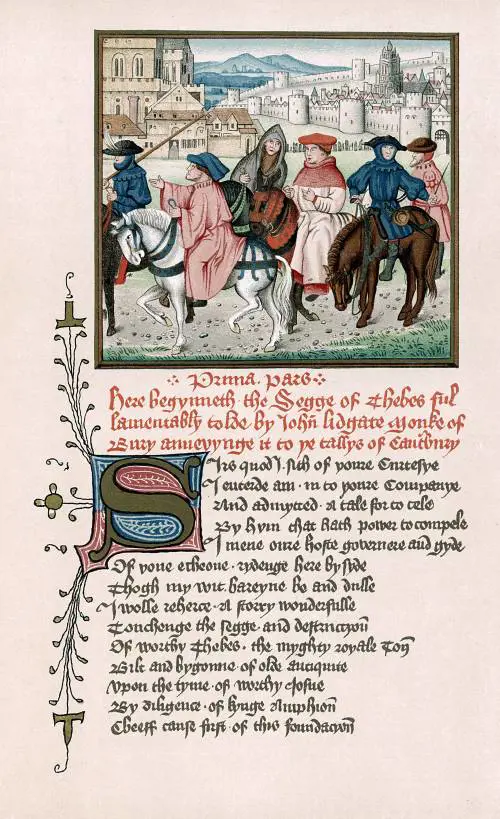 Prima · pars
Here begynneth the Segge of Thebes ful
lamentably tolde by John lidgate Monke of
Bury annevynge it to ye tallys of Cantbury
Sirs quod I sith of youre Curtesye
I entrede am in to youre Companye
And admytted · a tale for to tele
By hym that hath power to compele
I mene oure hoste governere and gyde
Of yone echeone · rydenge here by syde
Thogh my wit bareyne be and dulle
I wolle reherce · a storry wonderfulle
Touchenge the segge and destruccyon
Of worthy Thebes · the myghty royale Ton
Bilt and bygonne of olde antiquite
Vpon the tyme of worthy Josue
By diligence of kynge Amphion
Cheeff cause first of this foundacyon